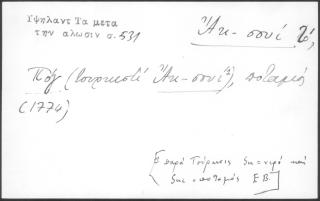 Υψηλαντ Τα μετα
την αλωσιν σ. 531
Ἀκ-σουί
Πόγ (τουρκιστί Ἀκ-σουί), ποταμός
(1774)
παρά Τούρκοις su = νερό καί
su = ποταμός Ε.Β.